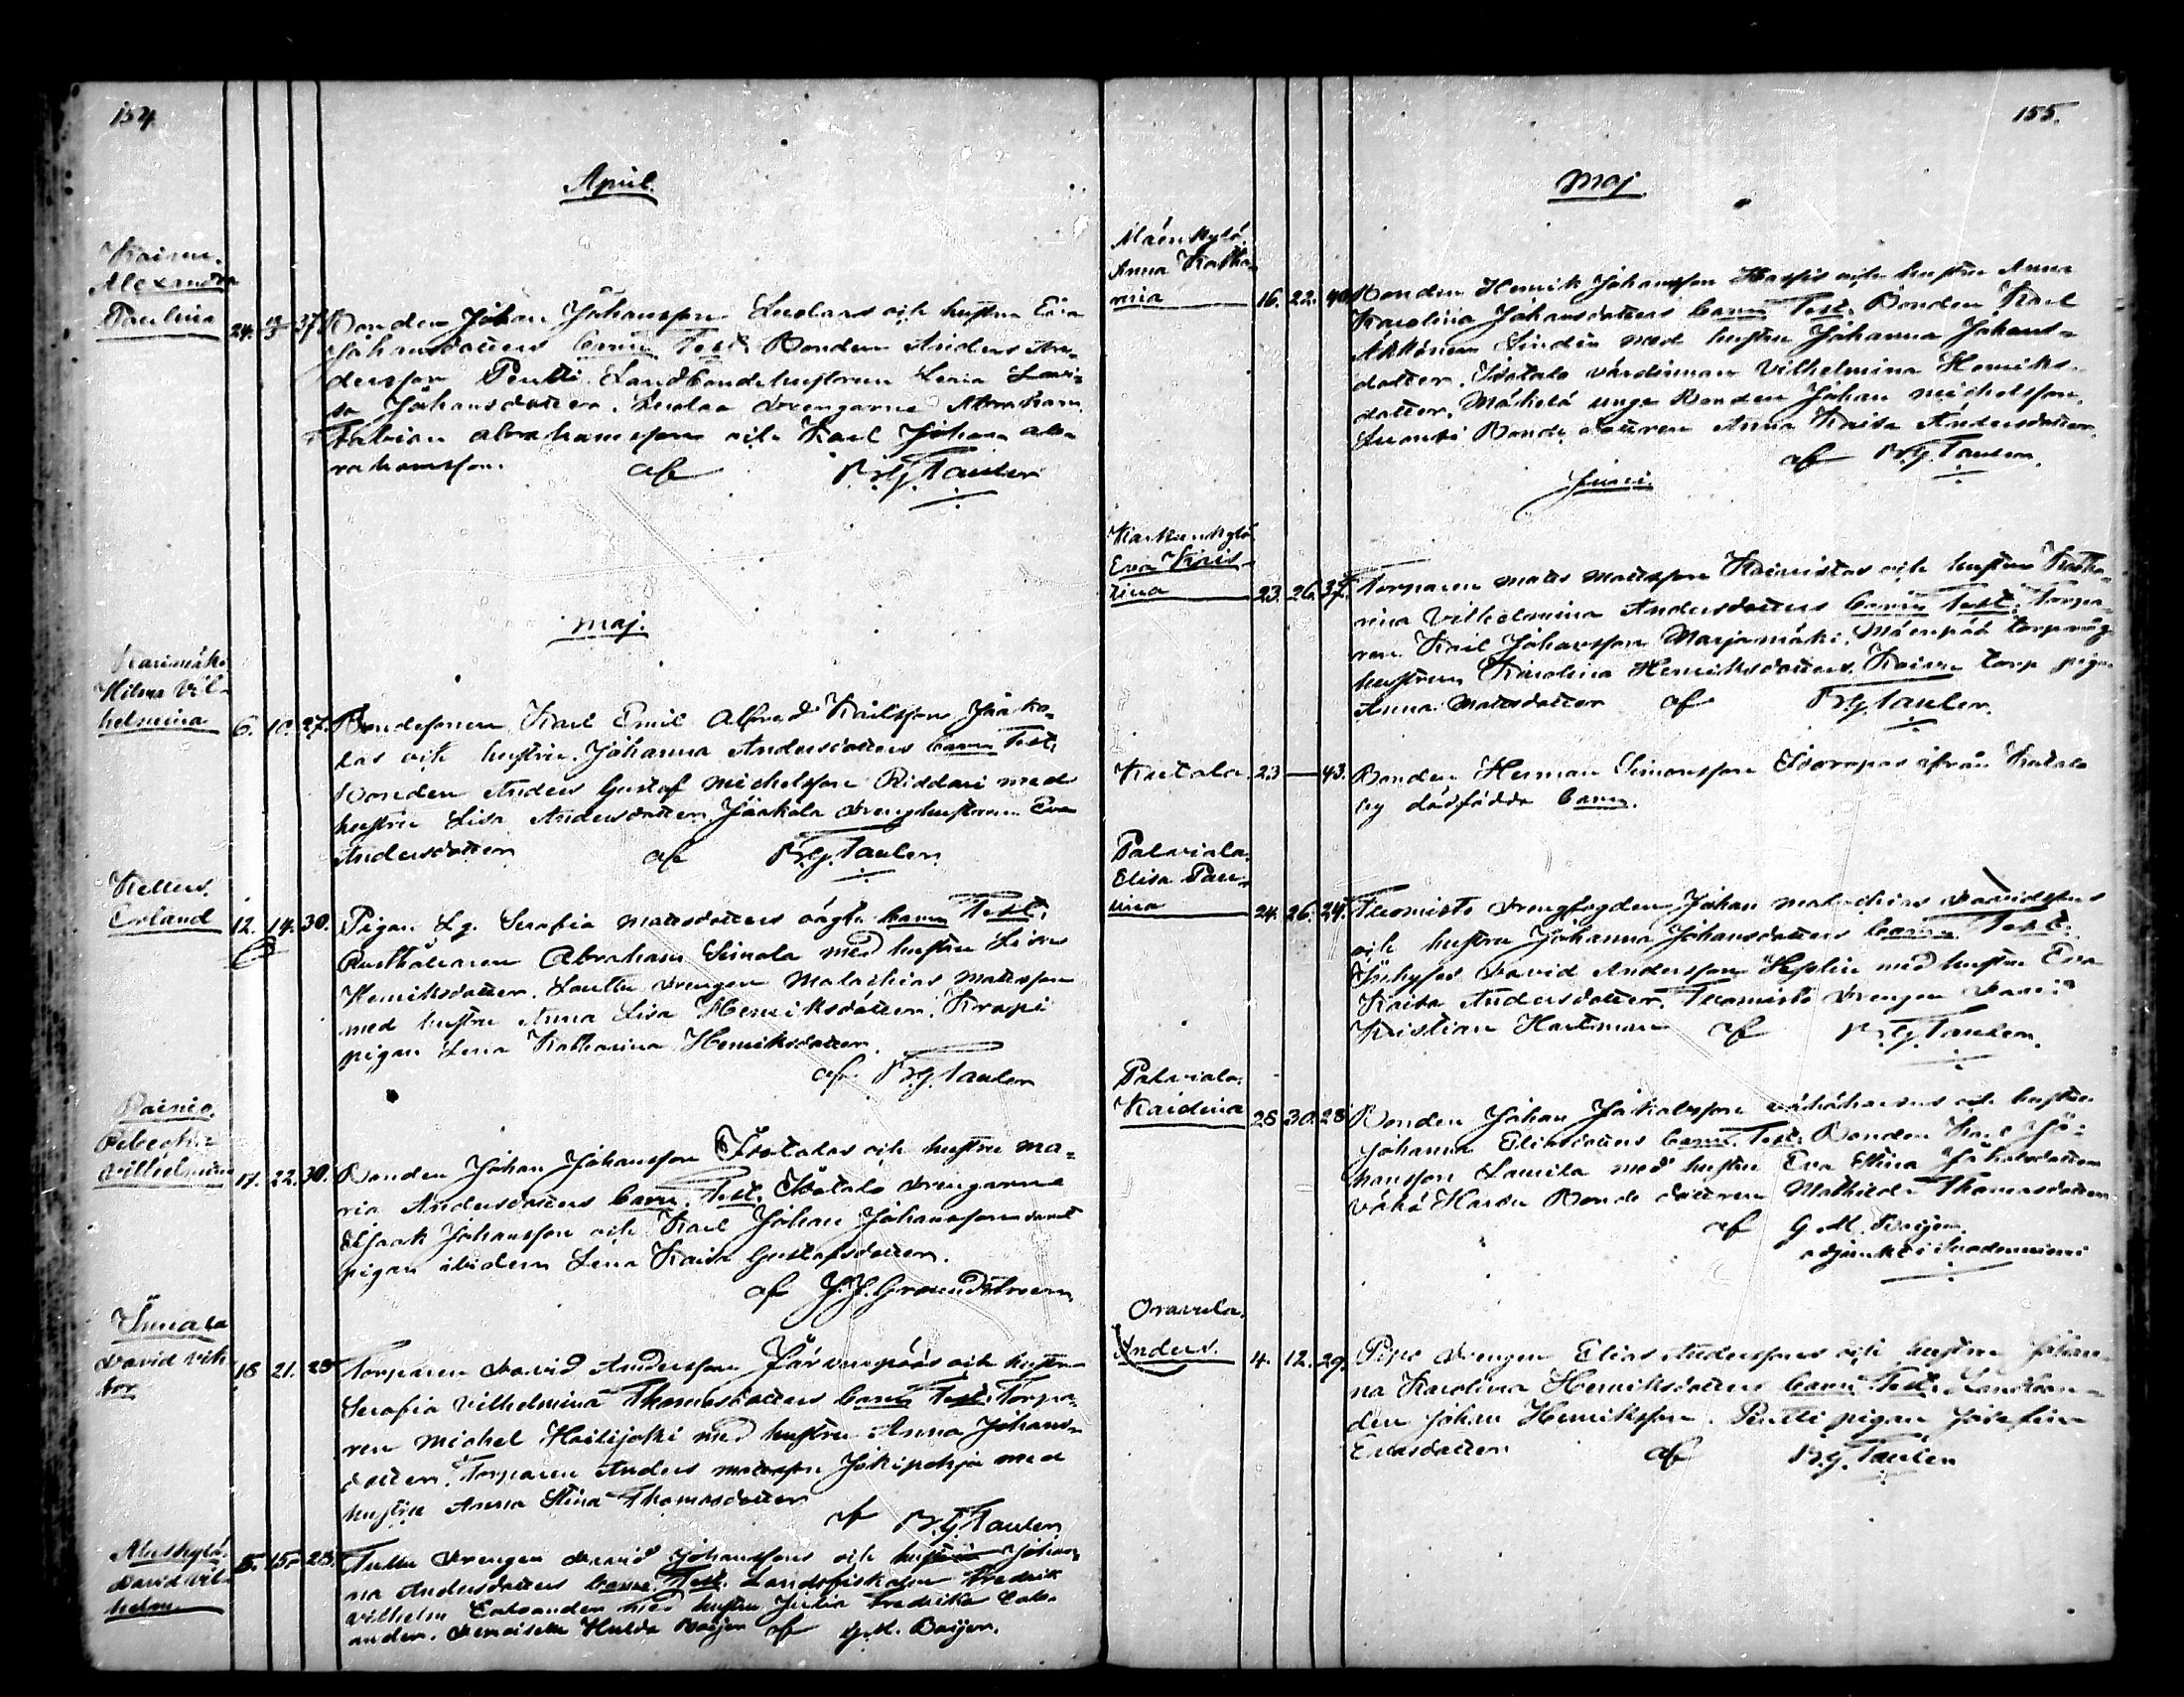 154
April.
Kaime.
Alexandra
Paulina 24. 37. Bonden Johan Johansson Luolaas och hustru Eva
Johansdotters barn. Test. Bonden Anders An-
dersson Pentti. Landbondehustrun Lena Lovi-
sa Johansdotter. Luolaa drengarne Abraham
Fabian Abrahamsson och Karl Johan Ab-
rahamsson. af B.G. Taulen
Maj.
Karimäki
Hilma Vil-
helmina 6. 10. 27. Bondesonen Karl Emil Alfred Karlsson Jaako-
las och hustru Johanna Andersdotters barn Test.
Bonden Anders Gustaf Michelsson Riddari med
hustru Lisa Andersdotter. Jaakola drenghustrun Eva
Andersdotter af B.G. Taulen.
Kellus.
Erland 12. 14. 30. Pigan Serafia Mattsdotters oägta barn Test.
Rusthållaren Abraham Simola med hustru Lisa
Henriksdotter. Lauttu drengen Malachias Mattsson
med hustru Anna Lisa Henriksdotter. Krapi
pigan Lena Katharina Henriksdotter.
af B.G. Taulen
Rainio.
Rebecka
Vilhelmina 17. 22. 30. Bonden Johan Johansson Isotalos och hustru Ma-
ria Andersdotters barn. Test. Isotalo drengarne
Isaak Johansson och Karl Johan Johansson samt
pigan ibidem Lena Kaisa Gustafsdotter.
af J.J. Groundstroem
Innala
David Vik-
tor 18 21. 28 Torparen David Andersson Järvenpääs och hustru
Serafia Vilhelmina Thomasdotters barn Test. Torpa-
ren Michel Haikijoki med hustru Anna Johans-
dotter. Torparen Anders Mattsson Jokipohja med
hustru Anna Stina Thomasdotter
af B.G. Taulen.
Aluskylä.
David Vil-
helm. 5. 15. 28. drengen David Johanssons och hustru Johan-
na Andersdotters barn. Test. Landsfiskalen Fredrik
Vilhelm Calonander med hustru Julia Fredrika Calon-
ander. Demoiselle Hulda Baijer af G.M. Baijer.
155.
Maj
Mäenkylä.
Anna Katha-
rina 16. 22. 40. Bonden Henrik Johansson och hustru Anna
Karolina Johansdotters barn Test. Bonden Karl
Akkonen Lindén med hustru Johanna Johans-
dotter. Isotalo värdinnan Vilhelmina Henriks-
dotter. Mäkelä unge Bonden Johan Michelsson.
Bonde dottren Anna Kaisa Andersdotter.
af B.G. Taulen.
Juni.
Karhunkylä
Eva Kris-
tina 23. 26. 37. Torparen Matts Mattsson Koivistos och hustru Katha-
rina Vilhelmina Andersdotters barn Test. Torpa-
ren Karl Johansson Marjamäki. Mäenpää torparens
hustrun Karolina Henriksdotter. Kaime torp pigan
Anna Mattsdotter af B.G. Taulen.
Katala 23 — 43. Bonden Herman Simonsson Isorapas ifrån Katala
by dödfödda barn.
Palviala
Elisa Pau-
lina 24. 26. 24. Tuomisto drengfogden Johan Malachias Davidssons
och hustru Johanna Johansdotters barn Test.
Inhyses David Andersson Heslin med hustru Eva
Kaisa Andersdotter. Tuomisto drengen David
Kristian Hartman af B.G. Taulen.
Palviala.
Kaidina 28 30. 28 Bonden Johan Jakobsson vähähaarus och hustru
Johanna Eliasdotters barn. Test. Bonden Karl Jo-
hansson Laurila med hustru Eva Stina Jakobsdotter
Vähä Haaru Bonde dottren Mathilda Thomasdotter
af G.M. Baijer.
adjunkt i Suodenniemi
Oravula.
Anders. 4. 12. 29. Pipo drengen Elias Anderssons och hustru Johan-
na Karolina Henriksdotters barn. Test. Landbon-
den Johan Henriksson. Pentti pigan Josefina
Enasdotter af B.G. Taulen